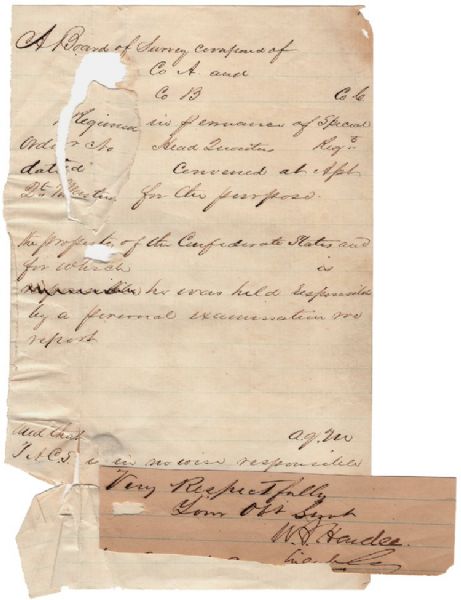 A Board of Survey composed of
Co A. and
Co B Co C
Regiment in pursuance of Special
Order No Head Quarters Regt.
dated Convened at Apt
Qr Masters for the purpose.
the property of the Confederate States and
for which is
responsible he was held responsible
by a personal examination we
report
And that a.q.m
is in no wise responsible
Very Respectfully
Your Obt Servt
W J Hardee